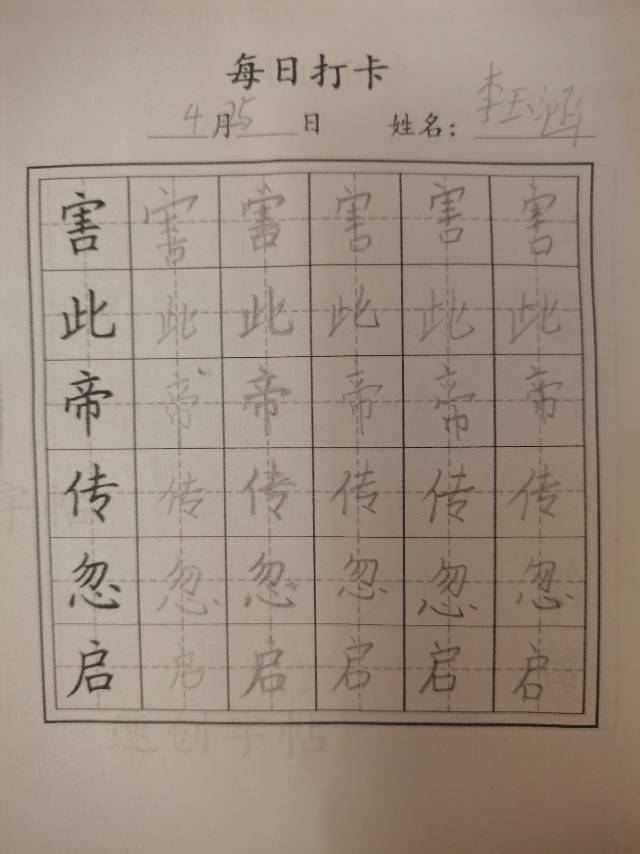 每日打卡
4月25日 姓名：李玉涵
害害害害害害
此此此此此此
帝帝帝帝帝帝
传传传传传传
忽忽忽忽忽忽
启启启启启启